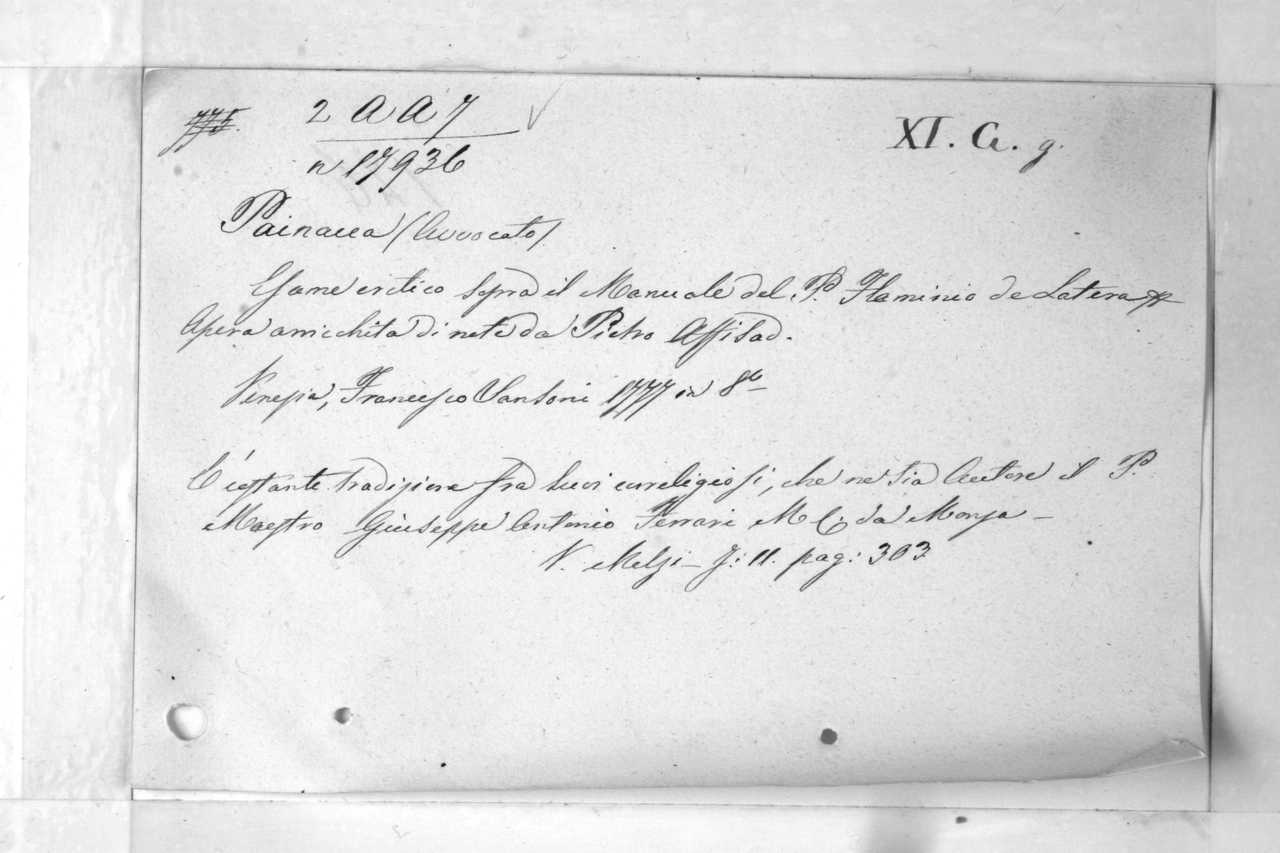 775.
2 A A 7
n 17936
XI. G. g.
Painacca (Avvocato)
Esame critico sopra il Manuale del P. Flaminio de Latera
Opera arricchita di note da Pietro Affisad.
Venezia, Francesco Sansoni 1777 in 8º
È costante tradizione fra suoi correligiosi, che ne sia Autore il P.
Maestro Giuseppe Antonio Ferrari M C da Monza -
V. Melzi - T: 11. pag: 303